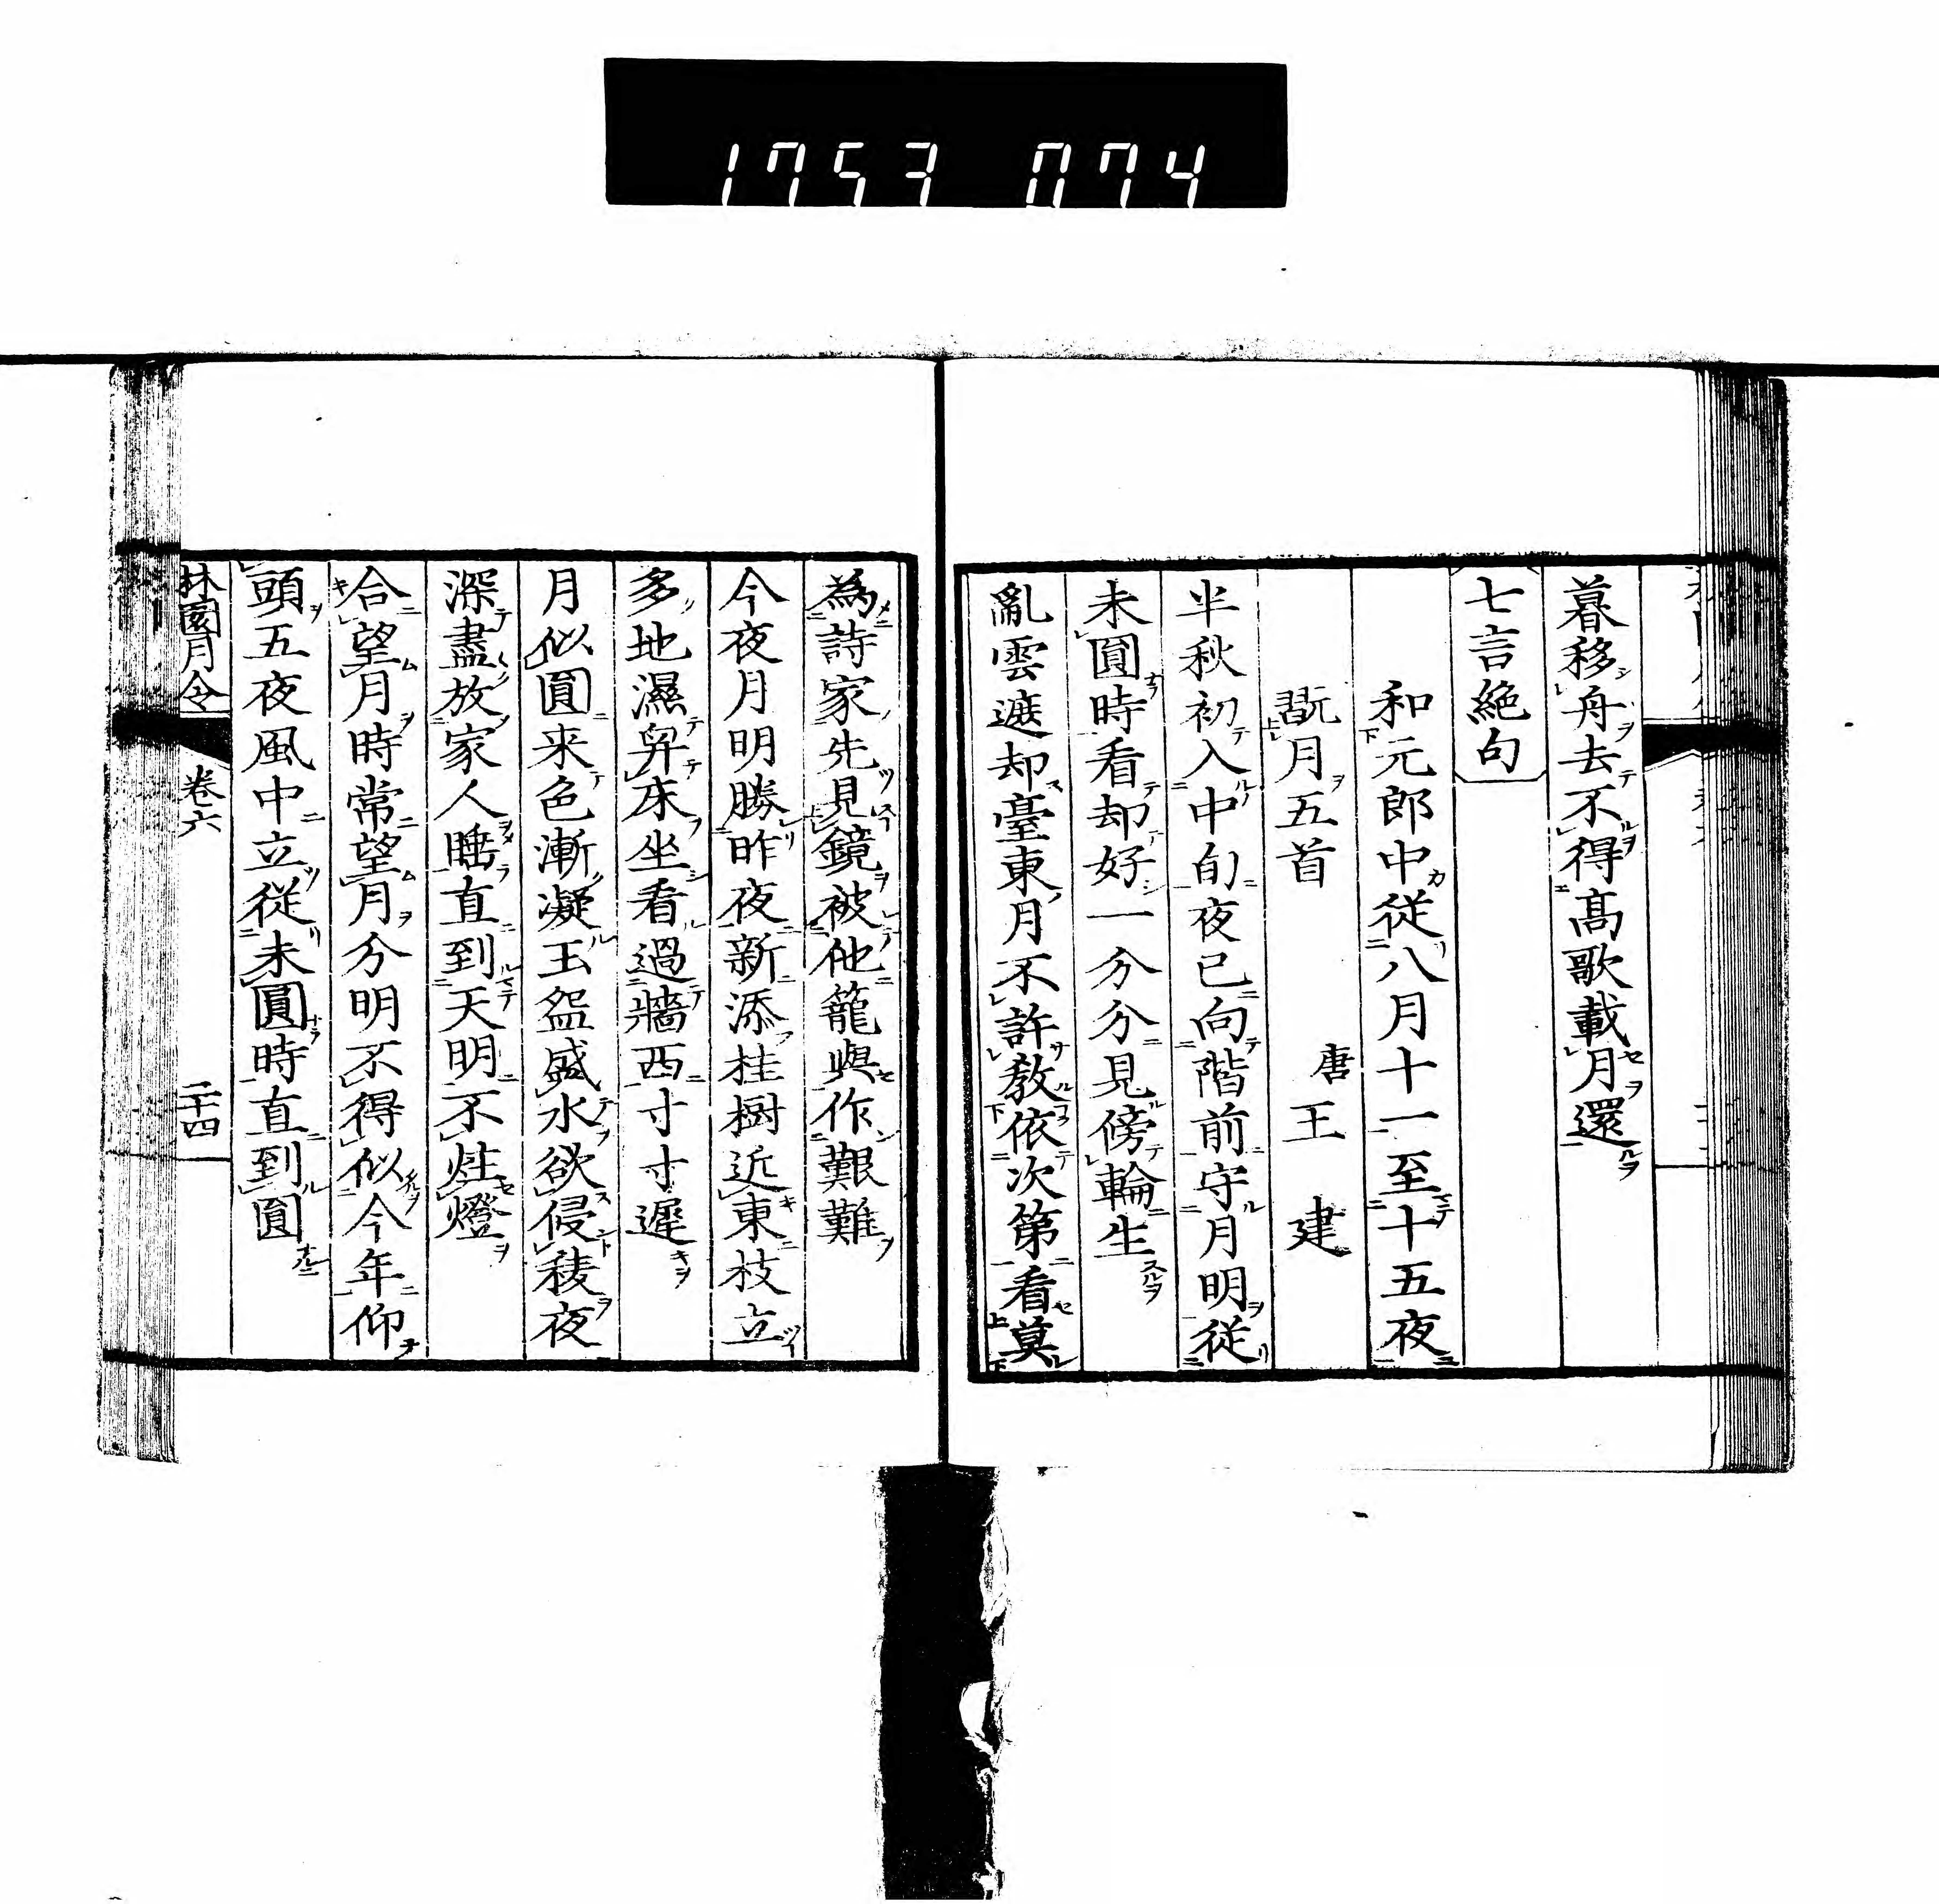 1753 074
暮移舟去不得髙歌載月還
七言絶句
和元郎中従八月十一至十五夜
翫月五首　唐王建
半秋初入中旬夜已向階前守月明従
未圓時看却好一分分見傍輪生
亂雲遮却臺東月不許教依次第看莫
為詩家先見鏡被他籠與作艱難
今夜月明勝昨夜新添桂樹近東枝立
多地濕舁床坐看過牆西寸寸遲
月似圓来色漸凝玉盌盛水欲侵稜夜
深盡放家人睡直到天明不炷燈
合望月時常望月分明不得似今年仰
頭五夜風中立従未圓時直到圓
林園月令　卷六　二十四